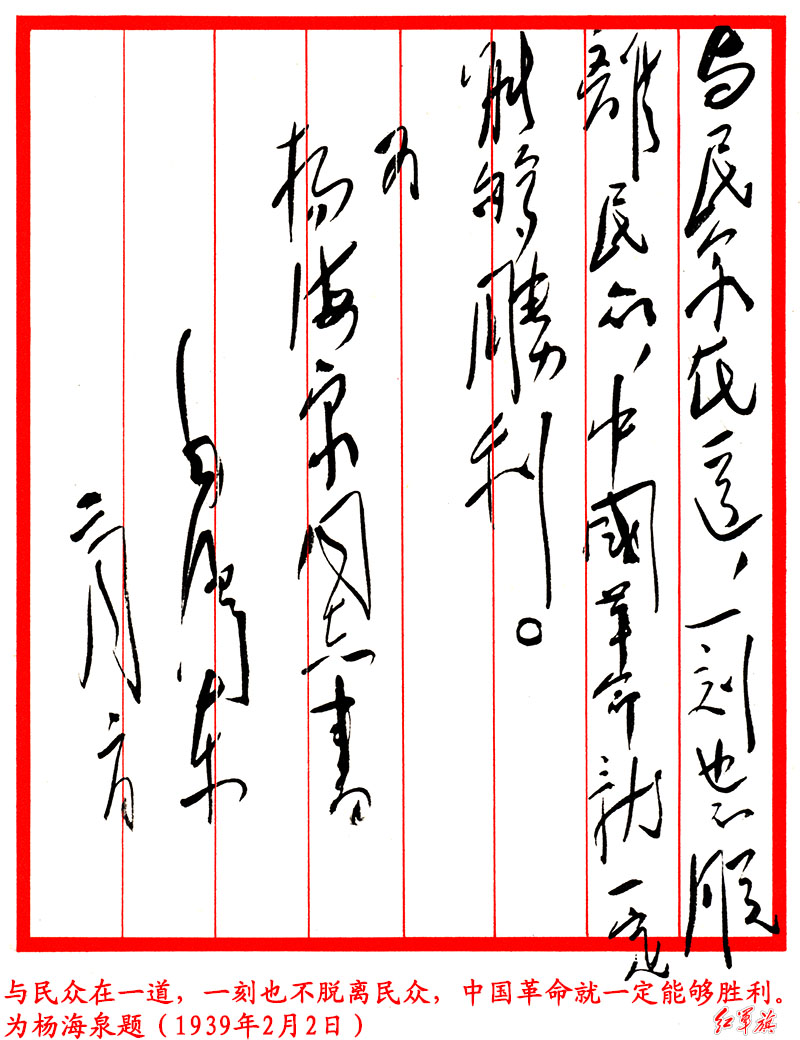 与民众在一道，一刻也不脱
離民众，中國革命就一定
能够勝利。
为
杨海泉同志書
毛泽东
二月二日
与民众在一道，一刻也不脱离民众，中国革命就一定能够胜利。
为杨海泉题（1939年2月2日）
红军旗